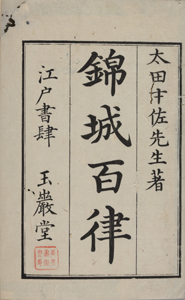 太田才佐先生著
錦城百律
江戶書肆 玉巖堂